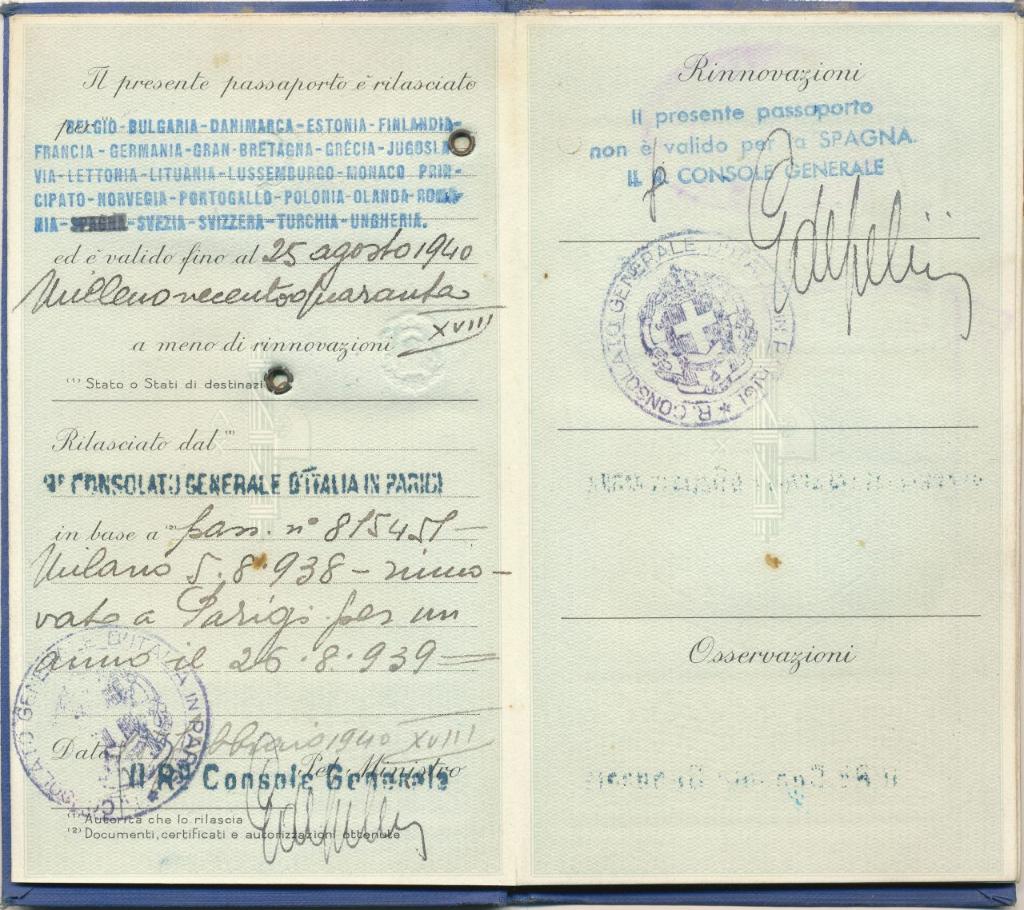 Il presente passaporto è rilasciato
per (1) BELGIO-BULGARIA-DANIMARCA-ESTONIA-FINLANDIA-
FRANCIA-GERMANIA-GRAN-BRETAGNA-GRÈCIA-JUGOSLA-
VIA-LETTONIA-LITUANIA-LUSSEMBURGO-MONACO PRIN-
CIPATO-NORVEGIA-PORTOGALLO-POLONIA-OLANDA-ROMA-
NIA-SPAGNA-SVEZIA-SVIZZERA-TURCHIA-UNGHERIA.
ed è valido fino al 25 agosto 1940
Millenovecentoquaranta
XVIII
a meno di rinnovazioni
(1) Stato o Stati di destinazi
Rilasciato dal (1)
Rº CONSOLATO GENERALE D'ITALIA IN PARIGI
in base a (2) pass. nº 815451
Milano 5.8.938 - rinno-
vato a Parigi per un
anno il 26.8.939
Data febbraio 1940 XVIII
Pel Ministro
Il Rº Console Generale
(1) Autorità che lo rilascia
(2) Documenti, certificati e autorizzazioni ottenute
R. CONSOLATO GENERALE D'ITALIA IN PARIGI
Rinnovazioni
Il presente passaporto
non è valido per la SPAGNA.
IL R. CONSOLE GENERALE
R. CONSOLATO GENERALE D'ITALIA IN PARIGI
Osservazioni